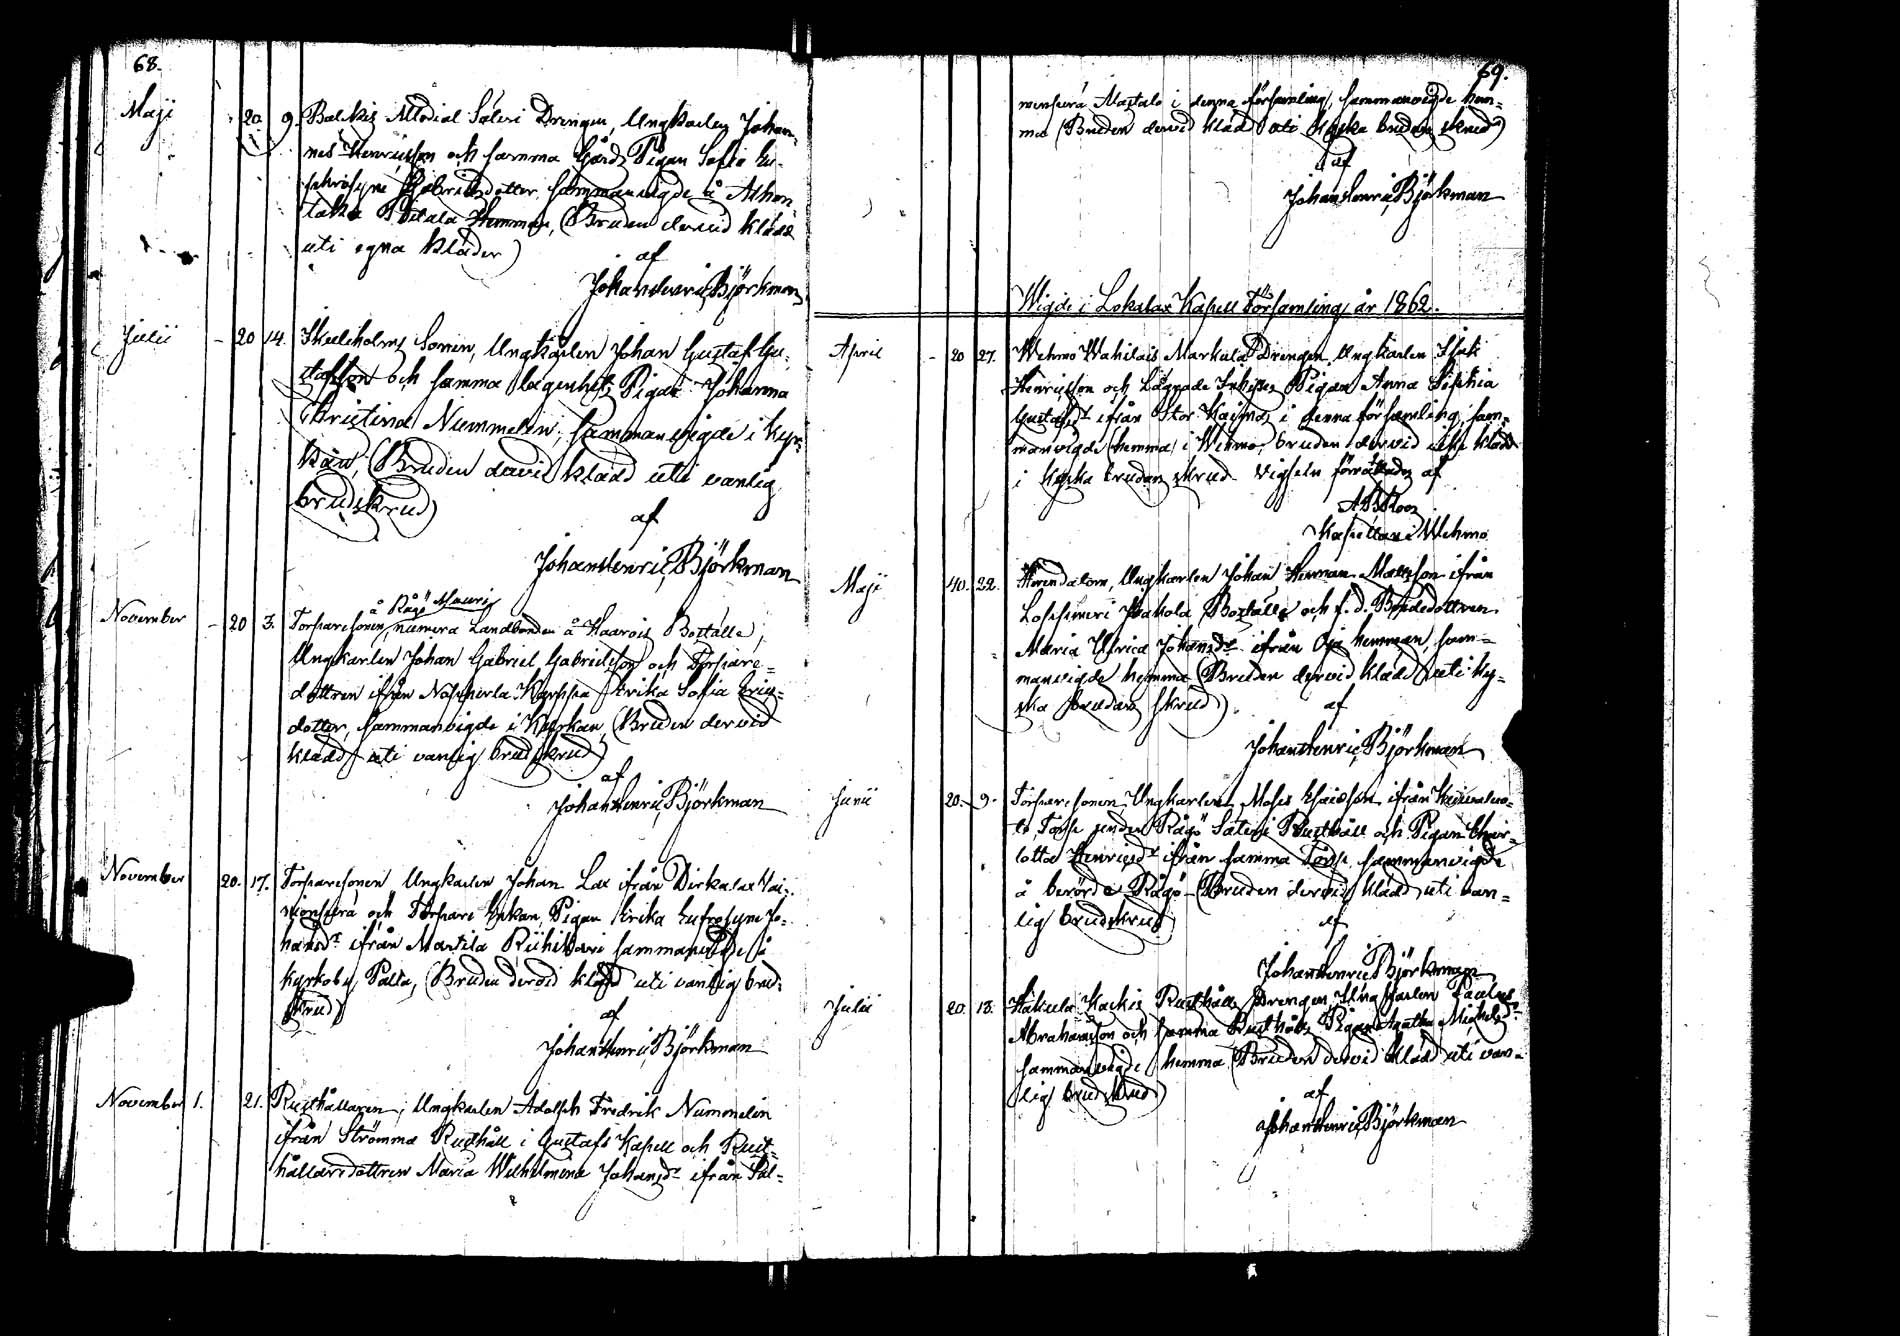 68.
Maji 20. 9. Balkis Allodial Säteri Drengen, Ungkarlen Johan-
nes Henricsson och samma Gårds Pigan Sofia Eu-
phrosyne Gabrielsdotter sammanvigde å
Hemman, (Bruden dervid klädd
uti egna kläder)
af
Johan Henric Björkman
Julii - 20 14. Sonen, Ungkarlen Johan Gustaf Gu-
stafsson och samma lägenhets Pigan Johanna
Christina Nummelin, sammanvigde i Kyr-
kan, (Bruden dervid klädd uti vanlig
brudskrud)
af
Johan Henric Björkman
å Rågö Mauris
November - 20 3. Torparesonen, numera Landbonden å Kaarois Boställe,
Ungkarlen Johan Gabriel Gabrielsson och Torpare-
dottren ifrån Erika Sofia Erics-
dotter, sammanvigde i Kyrkan, (Bruden dervid
klädd uti vanlig brudskrud)
af
Johan Henric Björkman
November 20. 17. Torparesonen Ungkarlen Johan Lax ifrån
och Torpare Enkan, Pigan Erika Eufrosyne Jo-
hansdr ifrån Martila sammanvigde å
Kyrkoby Palta, (Bruden dervid klädd uti vanlig brud-
skrud)
af
Johan Henric Björkman
November 1. 21. Rusthållaren, Ungkarlen Adolph Fredrik Nummelin
ifrån Strömma Rusthåll i Gustafs Kapell och Rust-
hållaredottren Maria Wilhelmina Johansdr ifrån Sal-
69.
i denna församling, sammanvigde hem-
ma (Bruden dervid klädd uti Kyska brudars skrud)
af
Johan Henric Björkman
Wigde i Lokalax Kapell Församling år 1862.
April - 20 27. Wehmo Wahilais Markula Drengen, Ungkarlen Isak
Henricsson och Pigan Anna Sophia
Gustafsdr ifrån Stor Kaisnas i denna församling, sam-
manvigde (hemma) i Wehmo, bruden dervid icke klädd
i Kyska brudars skrud. Vigseln förrättades af
Kapellan i Wehmo
Maji 40. 22. Ungkarlen Johan Herman Mattsson ifrån
Boställe och f. d. Bondedottren
Maria Ulrica Johansdr ifrån hemman, sam-
manvigde hemma (Bruden dervid klädd uti ky-
ska brudars skrud)
af
Johan Henric Björkman
Junii 20. 9. Torparesonen Ungkarlen Moses Esaiasson ifrån
Torp under Rågö Säteri Rusthåll och Pigan Char-
lotta Henricsdr ifrån samma Torp sammanvigde
å berörde Rågö (Bruden dervid klädd uti van-
lig brudskrud)
af
Johan Henric Björkman
Julii 20. 13. Rusthålls Drengen Ungkarlen
Abrahamsson och samma Rusthålls Pigan Agatha Michelsdr
sammanvigde hemma (Bruden dervid klädd uti van-
lig brudskrud)
af
Johan Henric Björkman